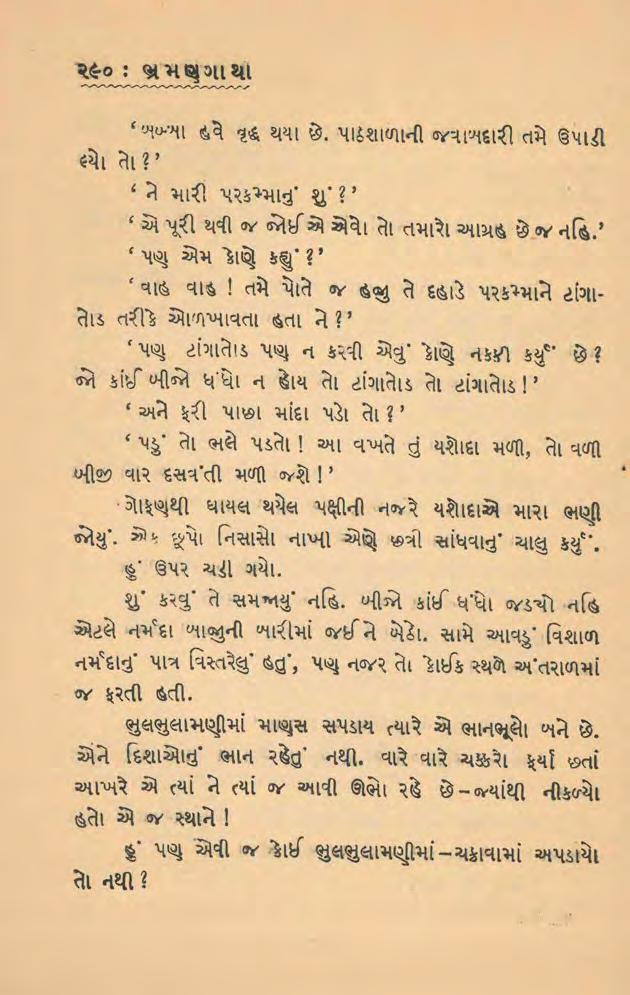 ૨૯૦ : ભ્રમણગાથા
‘બબ્બા હવે વૃદ્ધ થયા છે. પાઠશાળાની જવાબદારી તમે ઉપાડી
લ્યો તો ?’
‘ ને મારી પરકમ્માનું શું ?’
‘ એ પૂરી થવી જ જોઈએ એવો તો તમારો આગ્રહ છે જ નહિ.’
‘ પણ એમ કોણે કહ્યું ?’
‘ વાહ વાહ ! તમે પોતે જ હજી તે દહાડે પરકમ્માને ટાંગા-
તોડ તરીકે ઓળખાવતા હતા ને ?’
‘ પણ ટાંગાતોડ પણ ન કરવી એવું કોણે નક્કી કર્યું છે ?
જો કાંઈ બીજો ધંધો ન હોય તો ટાંગાતોડ તો ટાંગાતોડ !’
‘ અને ફરી પાછા માંદા પડો તો ?’
‘ પડું તો ભલે પડતો ! આ વખતે તું યશોદા મળી, તો વળી
બીજી વાર દસવંતી મળી જશે !’
ગોફણથી ઘાયલ થયેલ પક્ષીની નજરે યશોદાએ મારા ભણી
જોયું. એક છૂપો નિસાસો નાખી એણે છત્રી સાંધવાનું ચાલુ કર્યું.
હું ઉપર ચડી ગયો.
શું કરવું તે સમજાયું નહિ. બીજો કાંઈ ધંધો જડ્યો નહિ
એટલે નર્મદા બાજુની બારીમાં જઈને બેઠો. સામે આવડું વિશાળ
નર્મદાનું પાત્ર વિસ્તરેલું હતું, પણ નજર તો કોઈક સ્થળે અંતરાળમાં
જ ફરતી હતી.
ભુલભુલામણીમાં માણસ સપડાય ત્યારે એ ભાનભૂલો બને છે.
એને દિશાઓનું ભાન રહેતું નથી. વારે વારે ચક્કરો ફર્યા છતાં
આખરે એ ત્યાં ને ત્યાં જ આવી ઊભો રહે છે – જ્યાંથી નીકળ્યો
હતો એ જ સ્થાને !
હું પણ એવી જ કોઈ ભુલભુલામણીમાં – ચક્રાવામાં અપડાયો
તો નથી ?